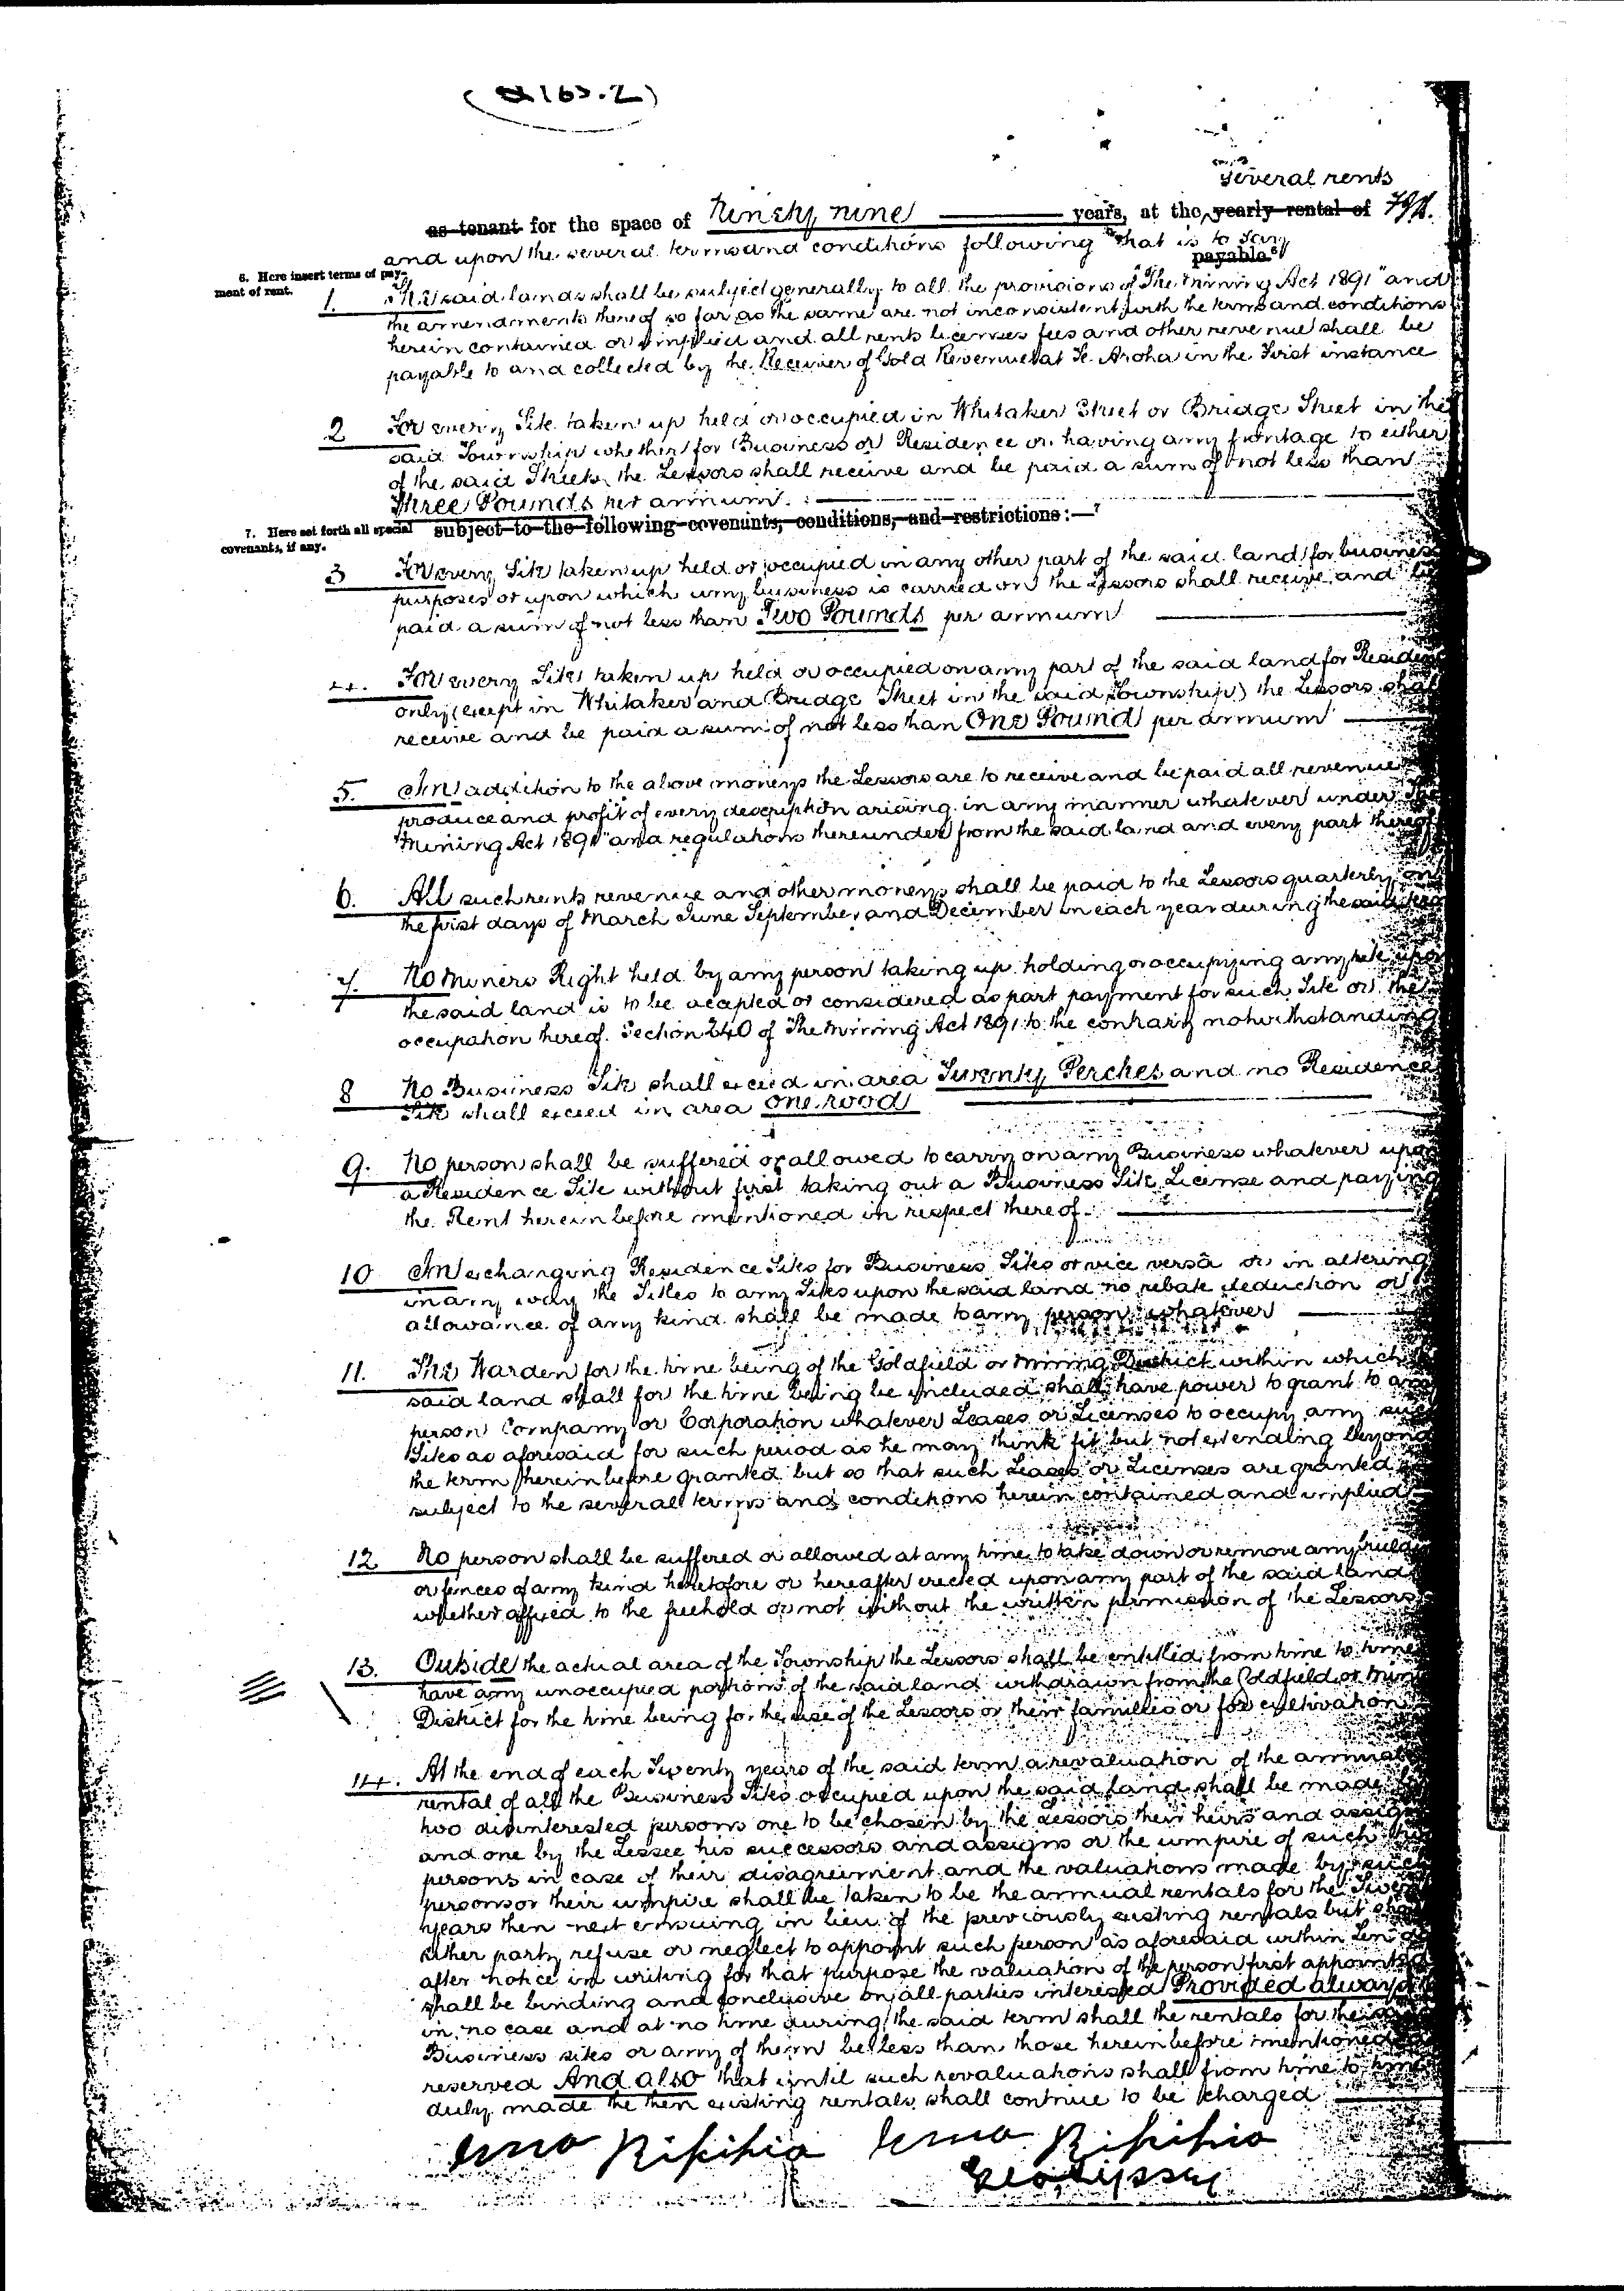 several rents
as tenant for the space of Ninety nine years, at the yearly rental of
and upon the several terms and conditions following that is to say
payable.6
6. Here insert terms of pay-
ment of rent.
1. The said lands shall be subject generally to all the provisions of "The Mining Act 1891" and
the amendments thereof so far as the same are not inconsistent with the terms and conditions
herein contained or implied and all rents licenses fees and other revenue shall be
payable to and collected by the Receiver of Gold Revenue at Te Aroha in the First instance
2 For every Site taken up held or occupied in Whitaker Street or Bridge Street in the
said Township whether for Business or Residence or having any frontage to either
of the said Streets the Lessors shall receive and be paid a sum of not less than
Three Pounds per annum.
7. Here set forth all special
covenants, if any.
subject to the following covenants, conditions, and restrictions:—7
3 For every Site taken up held or occupied in any other part of the said land for business
purposes or upon which any business is carried on the Lessors shall receive and be
paid a sum of not less than Two Pounds per annum
4. For every Site taken up held or occupied on any part of the said land for Residence
only (except in Whitaker and Bridge Street in the said Township) the Lessors shall
receive and be paid a sum of not less than One Pound per annum
5. In addition to the above moneys the Lessors are to receive and be paid all revenue
produce and profit of every description arising in any manner whatever under The
Mining Act 1891" and regulations thereunder from the said land and every part thereof
6. All such rents revenue and other moneys shall be paid to the Lessors quarterly on
the first days of March June September and December in each year during the said term
7. No Miners Right held by any person taking up holding or occupying any site upon
the said land is to be accepted or considered as part payment for such Site or the
occupation hereof. Section 240 of The Mining Act 1891 to the contrary notwithstanding
8 No Business Site shall exceed in area Twenty Perches and no Residence
Site shall exceed in area one rood
9. No person shall be suffered or allowed to carry on any Business whatever upon
a Residence Site without first taking out a Business Site License and paying
the Rent hereinbefore mentioned in respect thereof.
10 In exchanging Residence Sites for Business Sites or vice versâ or in altering
in any way the Titles to any Sites upon the said land no rebate deduction or
allowance of any kind shall be made to any person whatever
11. The Warden for the time being of the Goldfield or Mining District within which
said land shall for the time being be included shall have power to grant to any
person Company or Corporation whatever Leases or Licenses to occupy any such
Sites as aforesaid for such period as he may think fit but not extending beyond
the term hereinbefore granted but so that such Leases or Licenses are granted
subject to the several terms and conditions herein contained and implied
12 No person shall be suffered or allowed at any time to take down or remove any
or fences of any kind heretofore or hereafter erected upon any part of the said land
whether affixed to the freehold or not without the written permission of the Lessors
13. Outside the actual area of the Township the Lessors shall be entitled from time to time
have any unoccupied portions of the said land withdrawn from the Goldfield or
District for the time being for the use of the Lessors or their families or for cultivation
14. At the end of each Twenty years of the said term a revaluation of the annual
rental of all the Business Sites occupied upon the said land shall be made by
two disinterested persons one to be chosen by the Lessors their heirs and assigns
and one by the Lessee his successors and assigns or the umpire of such
persons in case of their disagreement and the valuations made by such
persons or their umpire shall be taken to be the annual rentals for the Twenty
years then next ensuing in lieu of the previously existing rentals but shall
either party refuse or neglect to appoint such person as aforesaid within Ten
after notice in writing for that purpose the valuation of the person first appointed
shall be binding and conclusive on all parties interested Provided always
in no case and at no time during the said term shall the rentals for the
Business sites or any of them be less than those hereinbefore mentioned
reserved And also that until such revaluations shall from time to time
duly made the then existing rentals shall continue to be charged
Ripihia Ripihia
Geo Lipsey